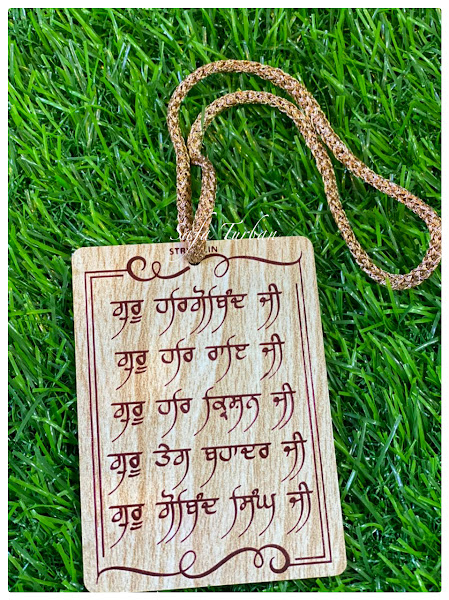 Sidhi Turban
ਗੁਰੂ ਹਰਿਗੋਬਿੰਦ ਜੀ
ਗੁਰੂ ਹਰਿ ਰਾਇ ਜੀ
ਗੁਰੂ ਹਰਿ ਕ੍ਰਿਸ਼ਨ ਜੀ
ਗੁਰੂ ਤੇਗ ਬਹਾਦਰ ਜੀ
ਗੁਰੂ ਗੋਬਿੰਦ ਸਿੰਘ ਜੀ